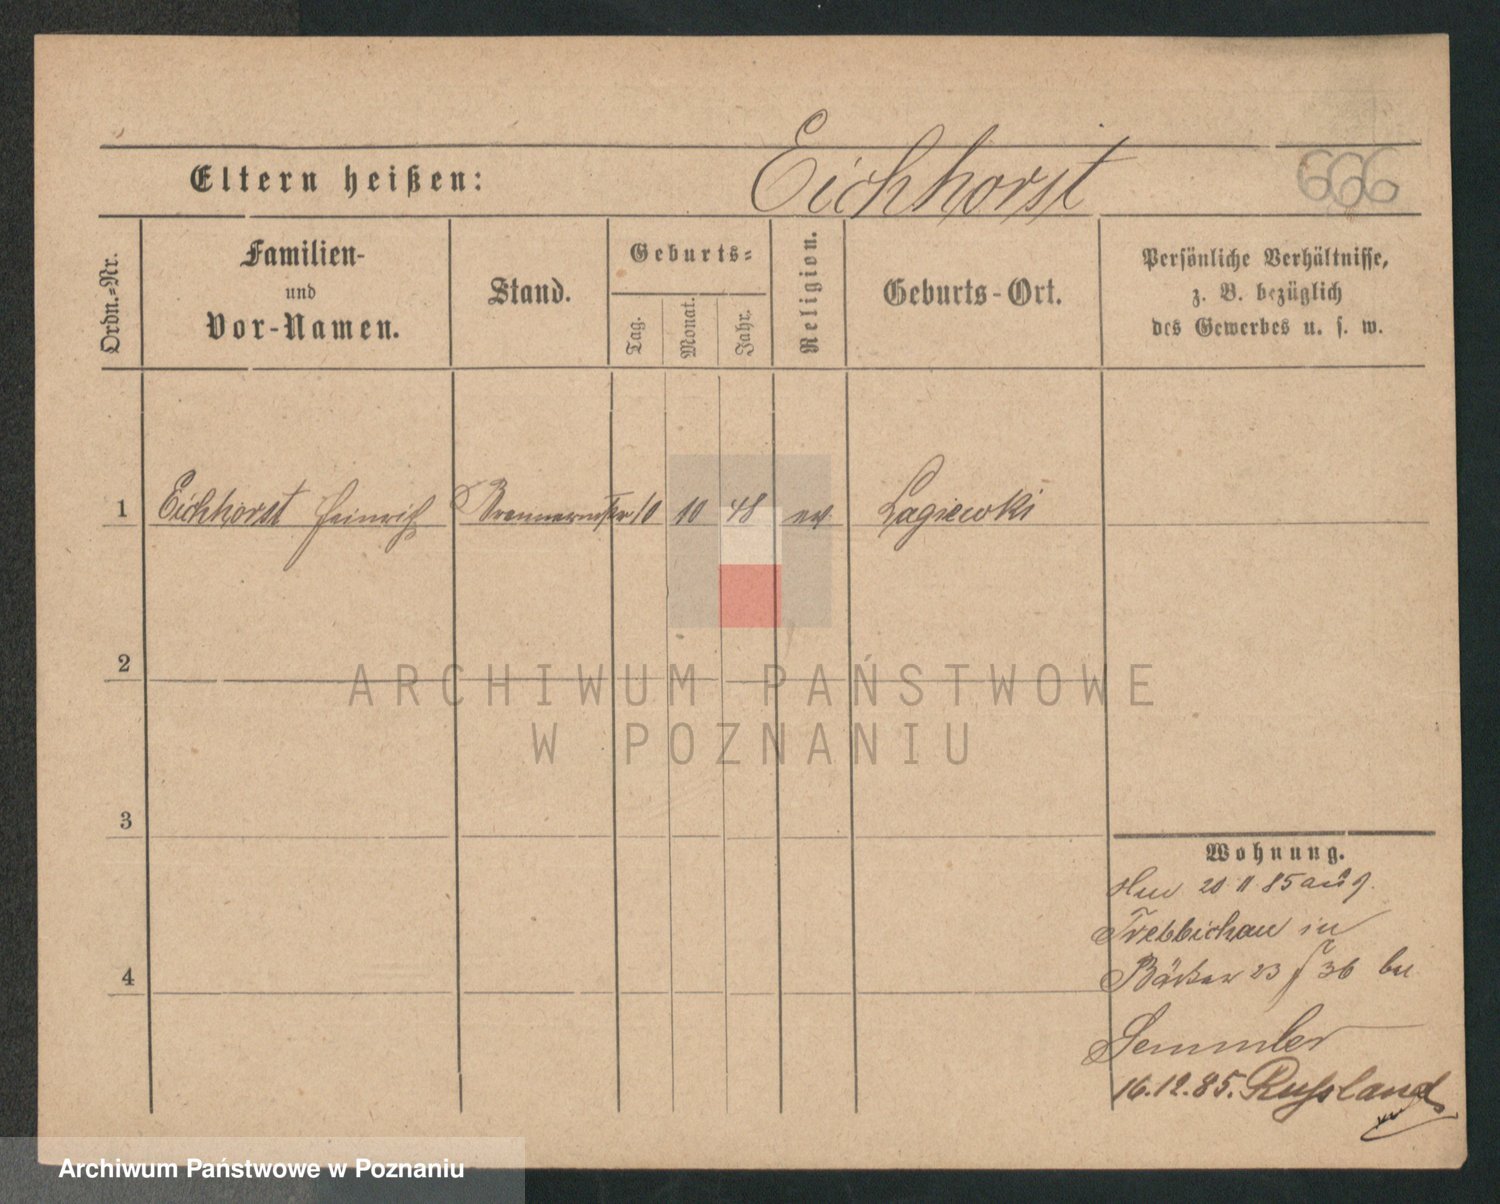 Eltern heißen: Eichhorst 666
Ordn.=Nr.
Familien- und Vor-Namen.
Stand.
Geburts=
Tag.
Monat.
Jahr.
Religion.
Geburts-Ort.
Persönliche Verhältnisse,
z. B. bezüglich
des Gewerbes u. s. w.
1 Eichhorst Heinrich Brennermstr 10 10 48 ev Lagiewki
2
ARCHIWUM PAŃSTWOWE
W POZNANIU
3
4
Wohnung.
20 11 85
Trebbichau in
Bäcker 23 / 36 bei
Semmler
16.12.85. Russland
Archiwum Państwowe w Poznaniu